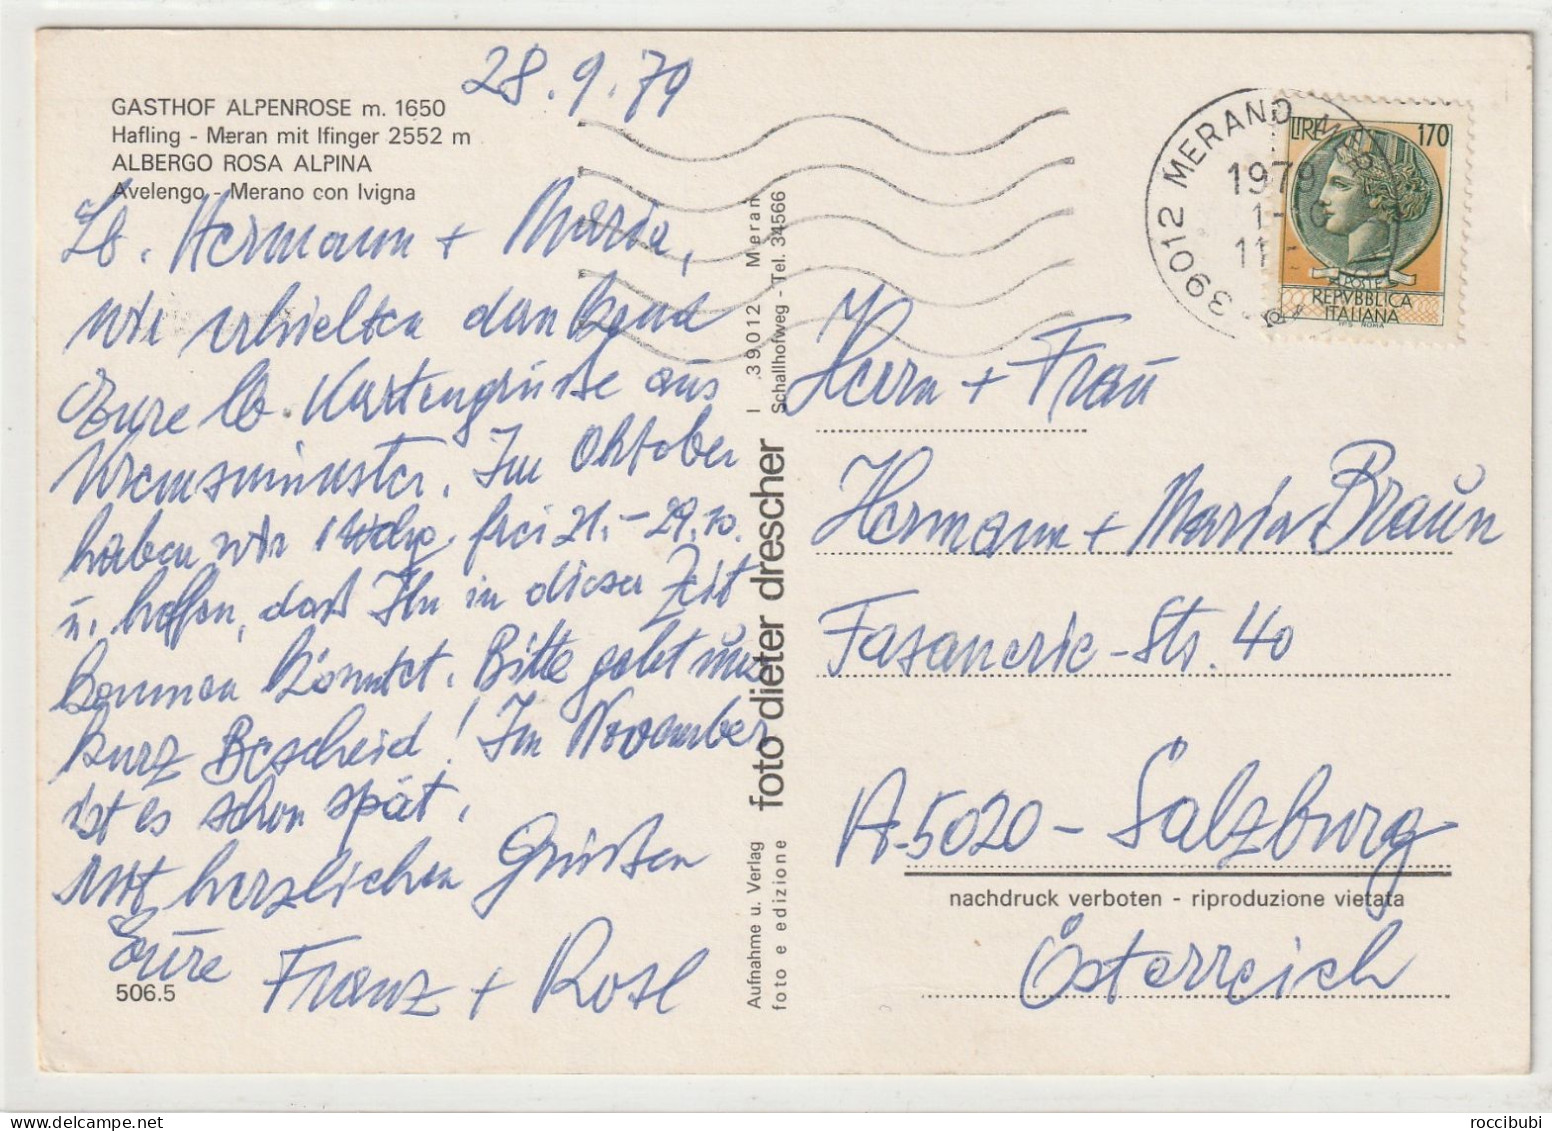 28.9.79
GASTHOF ALPENROSE m. 1650
Hafling - Meran mit Ifinger 2552 m
ALBERGO ROSA ALPINA
Avelengo - Merano con Ivigna
Lb. Hermann + Maria,
wir erhielten dankend
Eure lb. Kartengrüße aus
Kremsmünster. Im Oktober
haben wir frei 21.-29.10.
u. hoffen, daß Ihr in dieser Zeit
kommen könntet. Bitte gebt uns
kurz Bescheid! Im November
ist es schon spät.
Mit herzlichen Grüßen
Eure Franz + Rosl
506.5
Aufnahme u. Verlag
foto e edizione
foto dieter drescher
I 39012 Meran
Schallhofweg - Tel. 34566
39012 MERANO
1979
11
LIRE 170
POSTE
REPVBBLICA
ITALIANA
IPS ROMA
Herrn + Frau
Hermann + Maria Braun
Fasanerie-Str. 40
A-5020 - Salzburg
nachdruck verboten - riproduzione vietata
Österreich
roccibubi